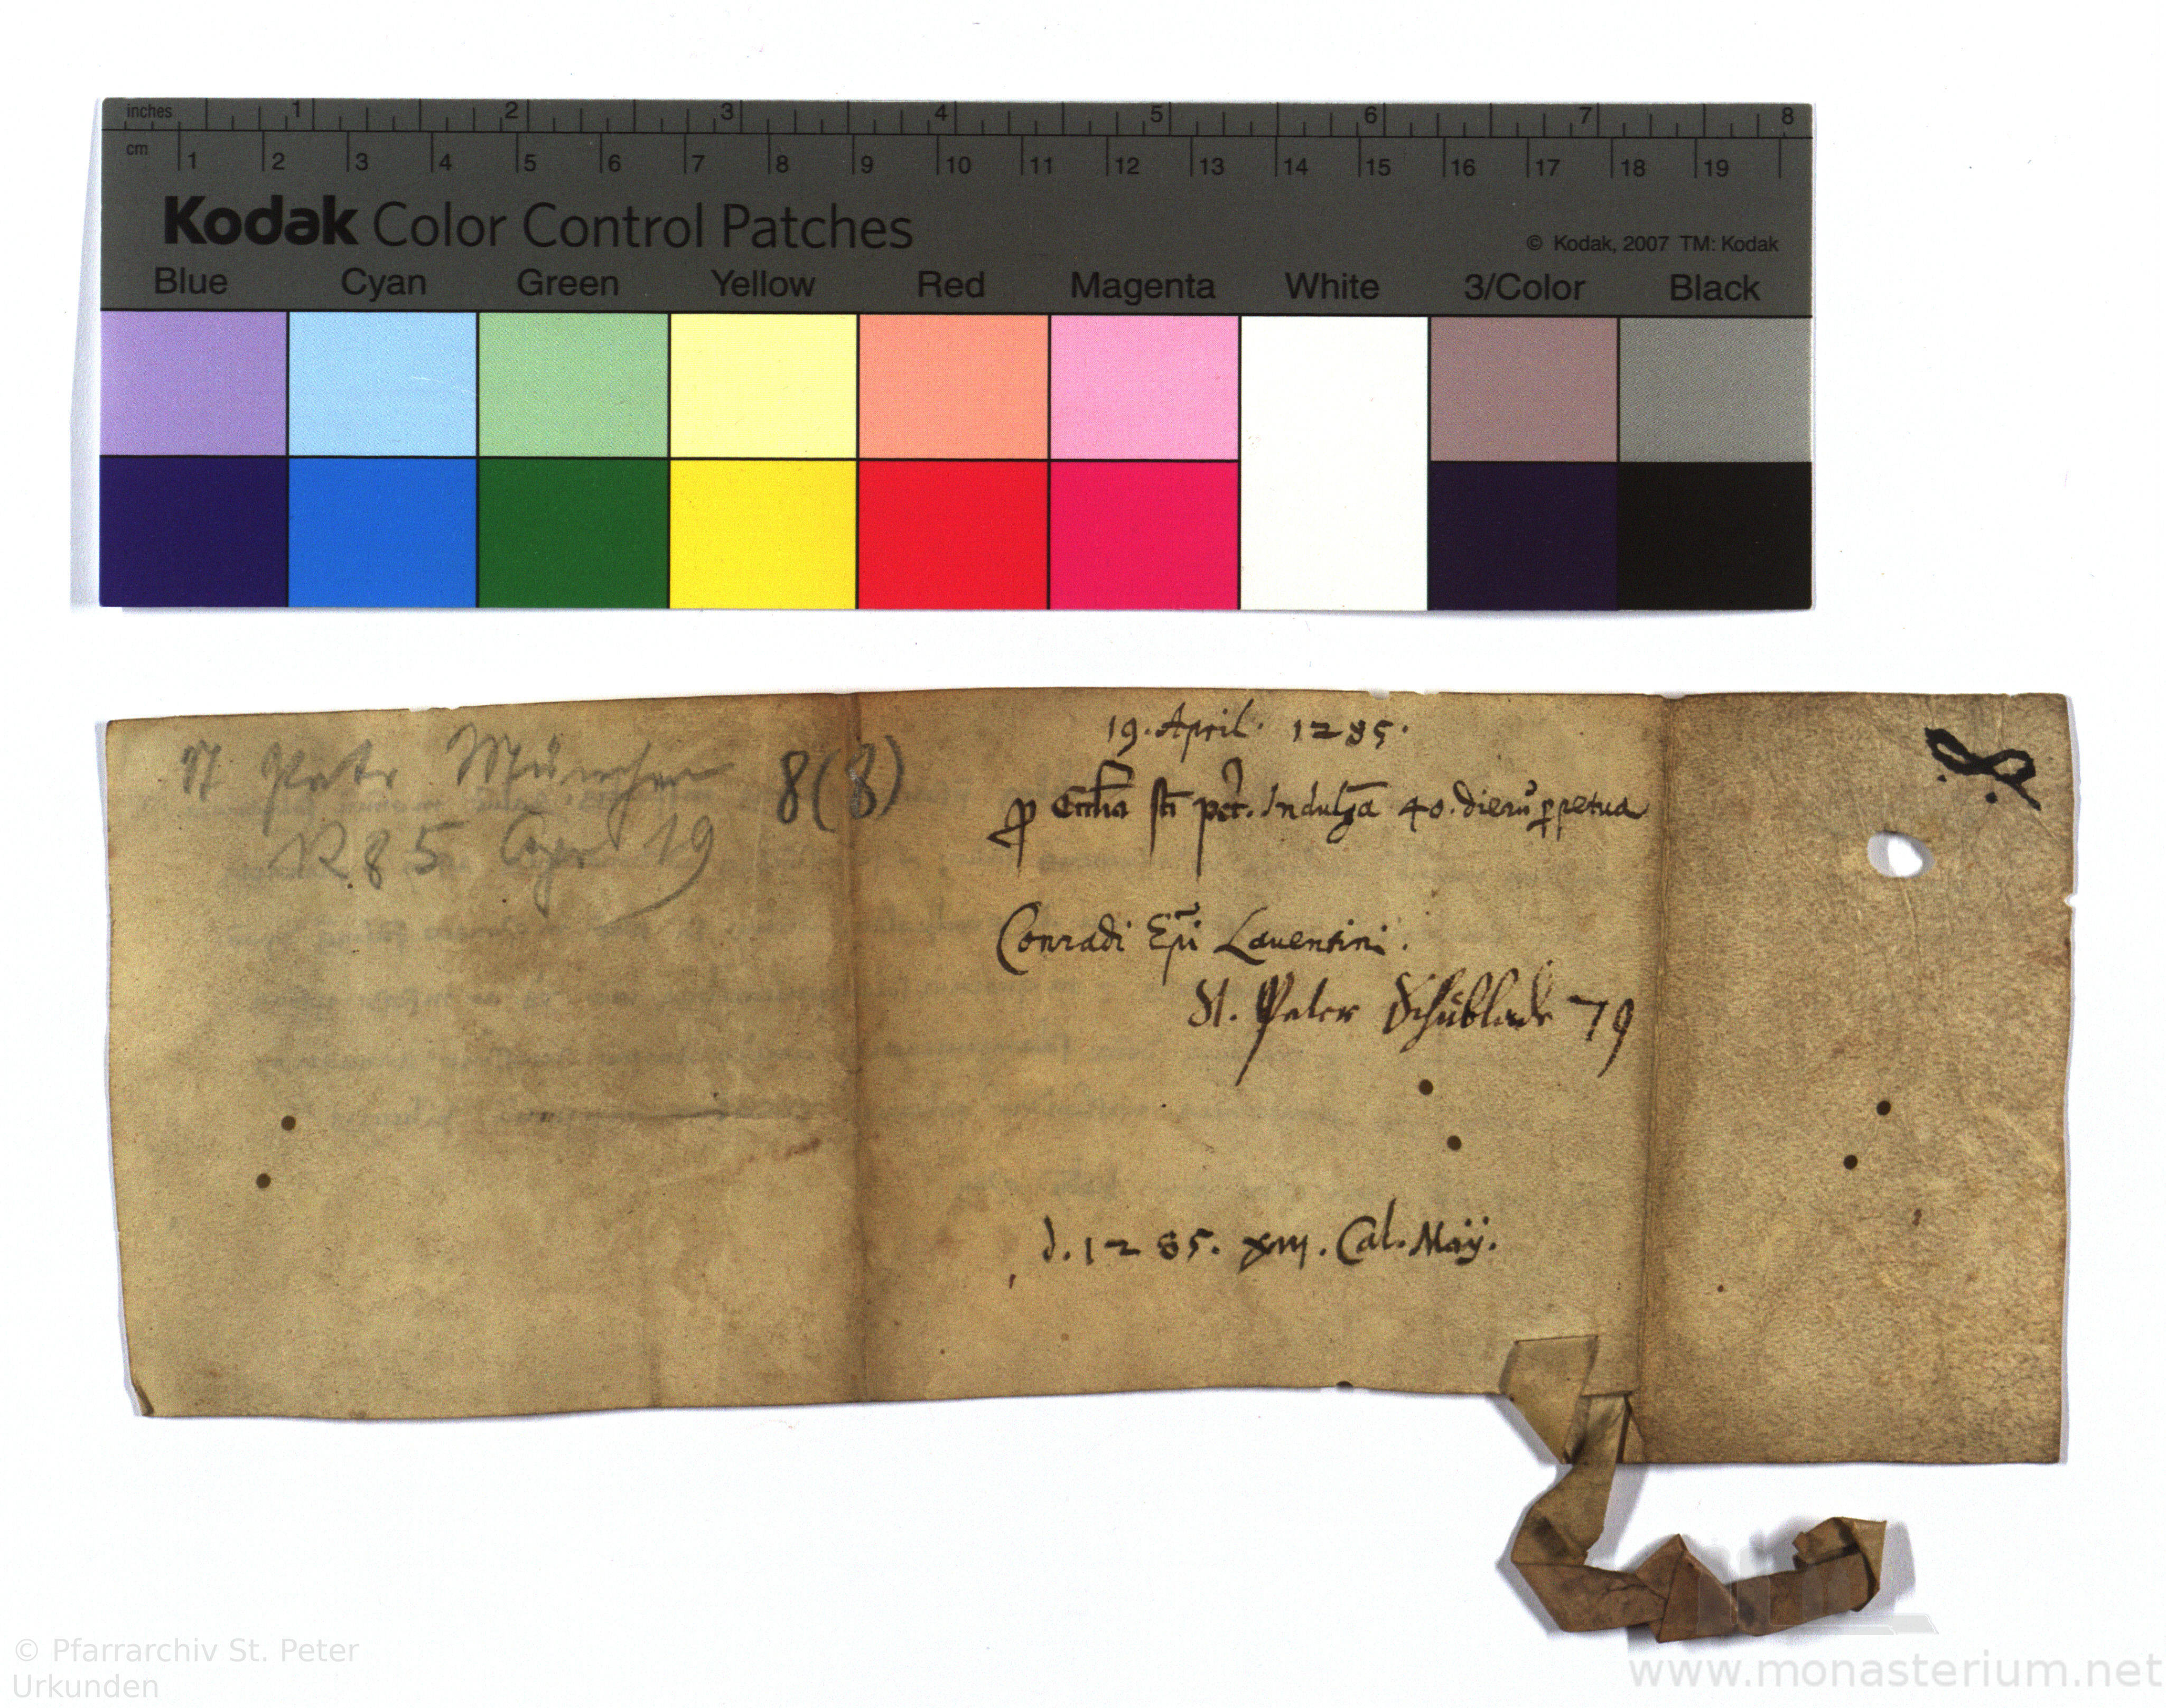 inches 1 2 3 4 5 6 7 8
cm 1 2 3 4 5 6 7 8 9 10 11 12 13 14 15 16 17 18 19
Kodak Color Control Patches
© Kodak, 2007 TM: Kodak
Blue Cyan Green Yellow Red Magenta White 3/Color Black
St Petr München 8(8)
1285 Apr 19
19. April. 1285.
p Eccłia sti pet. Indulḡa 40. dierū ꝑpetua
Conradi Ep̄i Lauentini.
St. Peter Schublade 79
d. 1285. XIII. Cal. Maÿ.
© Pfarrarchiv St. Peter
Urkunden
www.monasterium.net